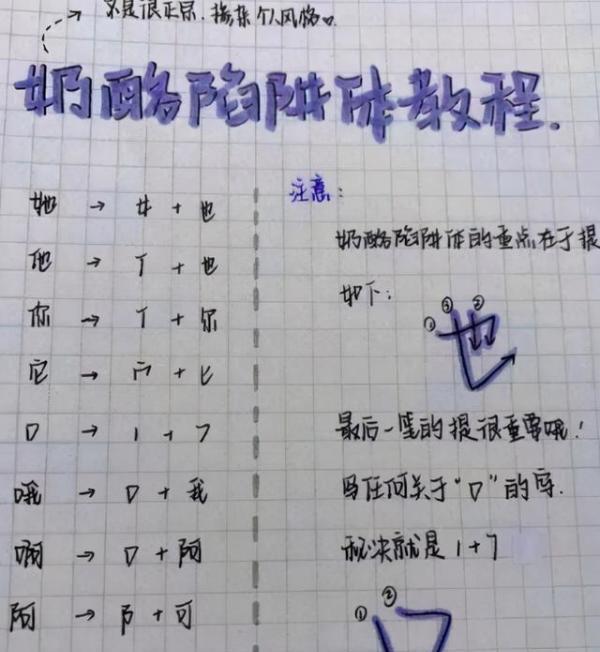 不是很正宗.掺杂个人风格。
奶酪陷阱体教程.
她 → 女 + 也
他 → 亻 + 也
你 → 亻 + 尔
它 → 宀 + 匕
口 → 1 + 7
哦 → 口 + 我
啊 → 口 + 阿
阿 → 阝 + 可
注意:
奶酪陷阱体的重点在于提
如下:
① ③ ②
也
最后一笔的提很重要哦!
写任何关于“口”的字.
秘诀就是1+7
① ②